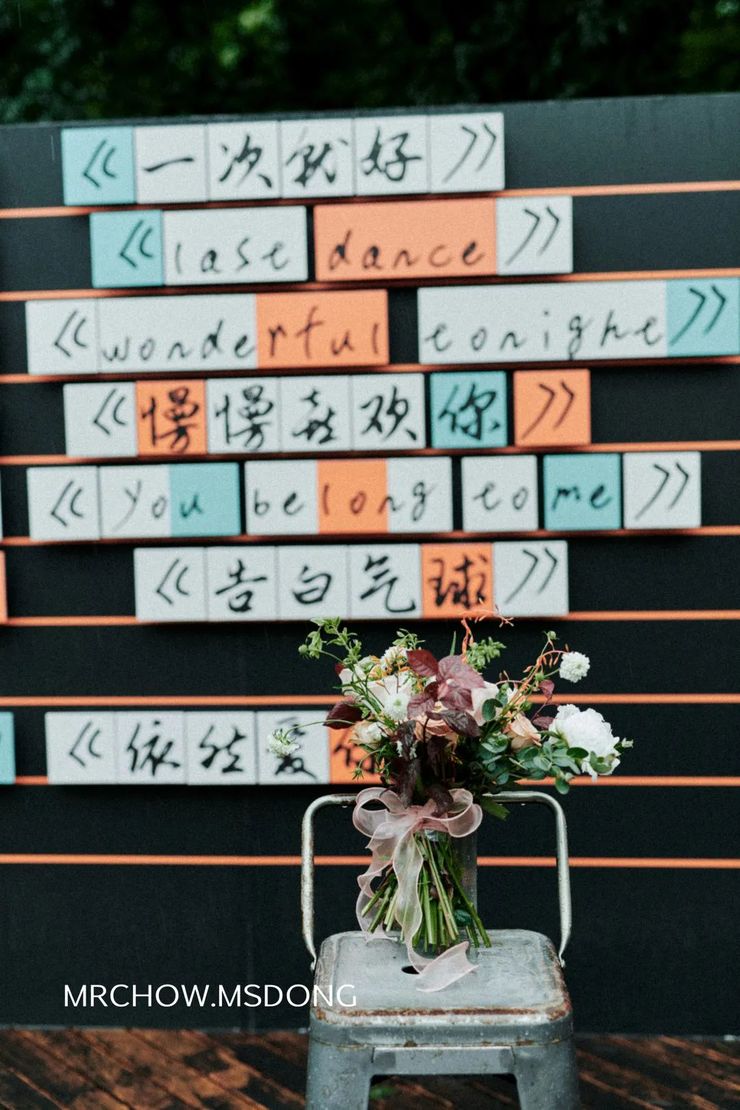 《一次就好》
《last dance》
《wonderful tonight》
《慢慢喜欢你》
《you belong to me》
《告白气球》
《依然爱
MRCHOW.MSDONG